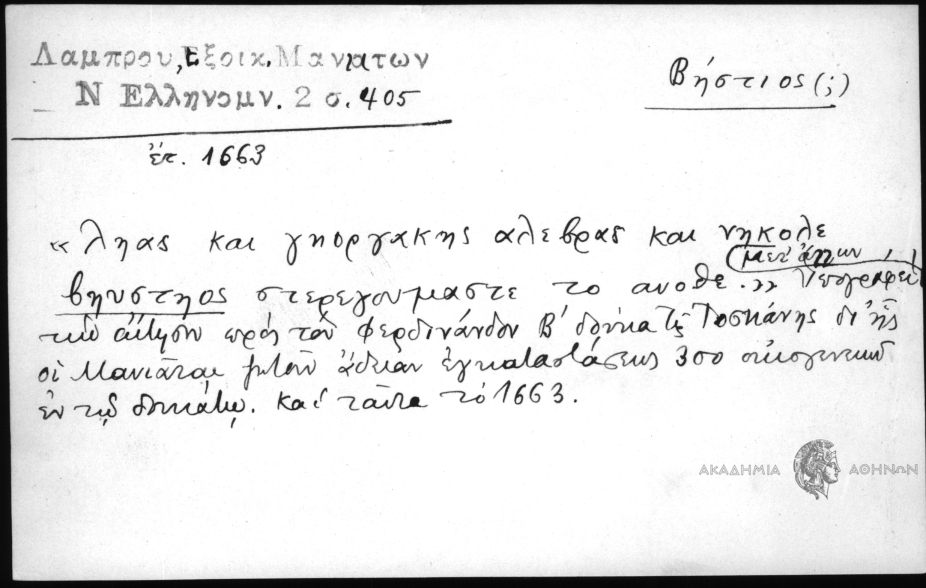 Λαμπρου, Εξοικ. Μανιατων
Ν Ελληνομν. 2 σ. 405
Βήστιος (;)
ἐπ. 1663
« ληας και γηοργακης αλεβρας και νηκολε
βηυστηος στερεγουμαστε το ανοθε.» Ὑπογράφει
μετ' ἄλλων
τὴν αἴτησιν πρὸς τὸν Φερδινάνδον Β' δοῦκα τῆς Τοσκάνης δι' ἧς
οἱ Μανιᾶται ζητοῦν ἄδειαν ἐγκαταστάσεως 300 οἰκογενειῶν
ἐν τῷ δουκάτῳ. Καὶ ταῦτα τὸ 1663.
ΑΚΑΔΗΜΙΑ ΑΘΗΝΩΝ